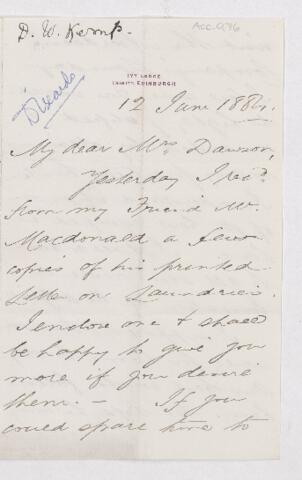 D. W. Kemp.
ACC.
IVY LODGE
EDINBURGH
12 June 188
My dear Mrs Dawson,
Yesterday I recd.
from my Friend Mr.
Macdonald a few
copies of his printed
Letter on Laundries.
I enclose one & shall
be happy to give you
more if you desire
them. — If you
could spare time to